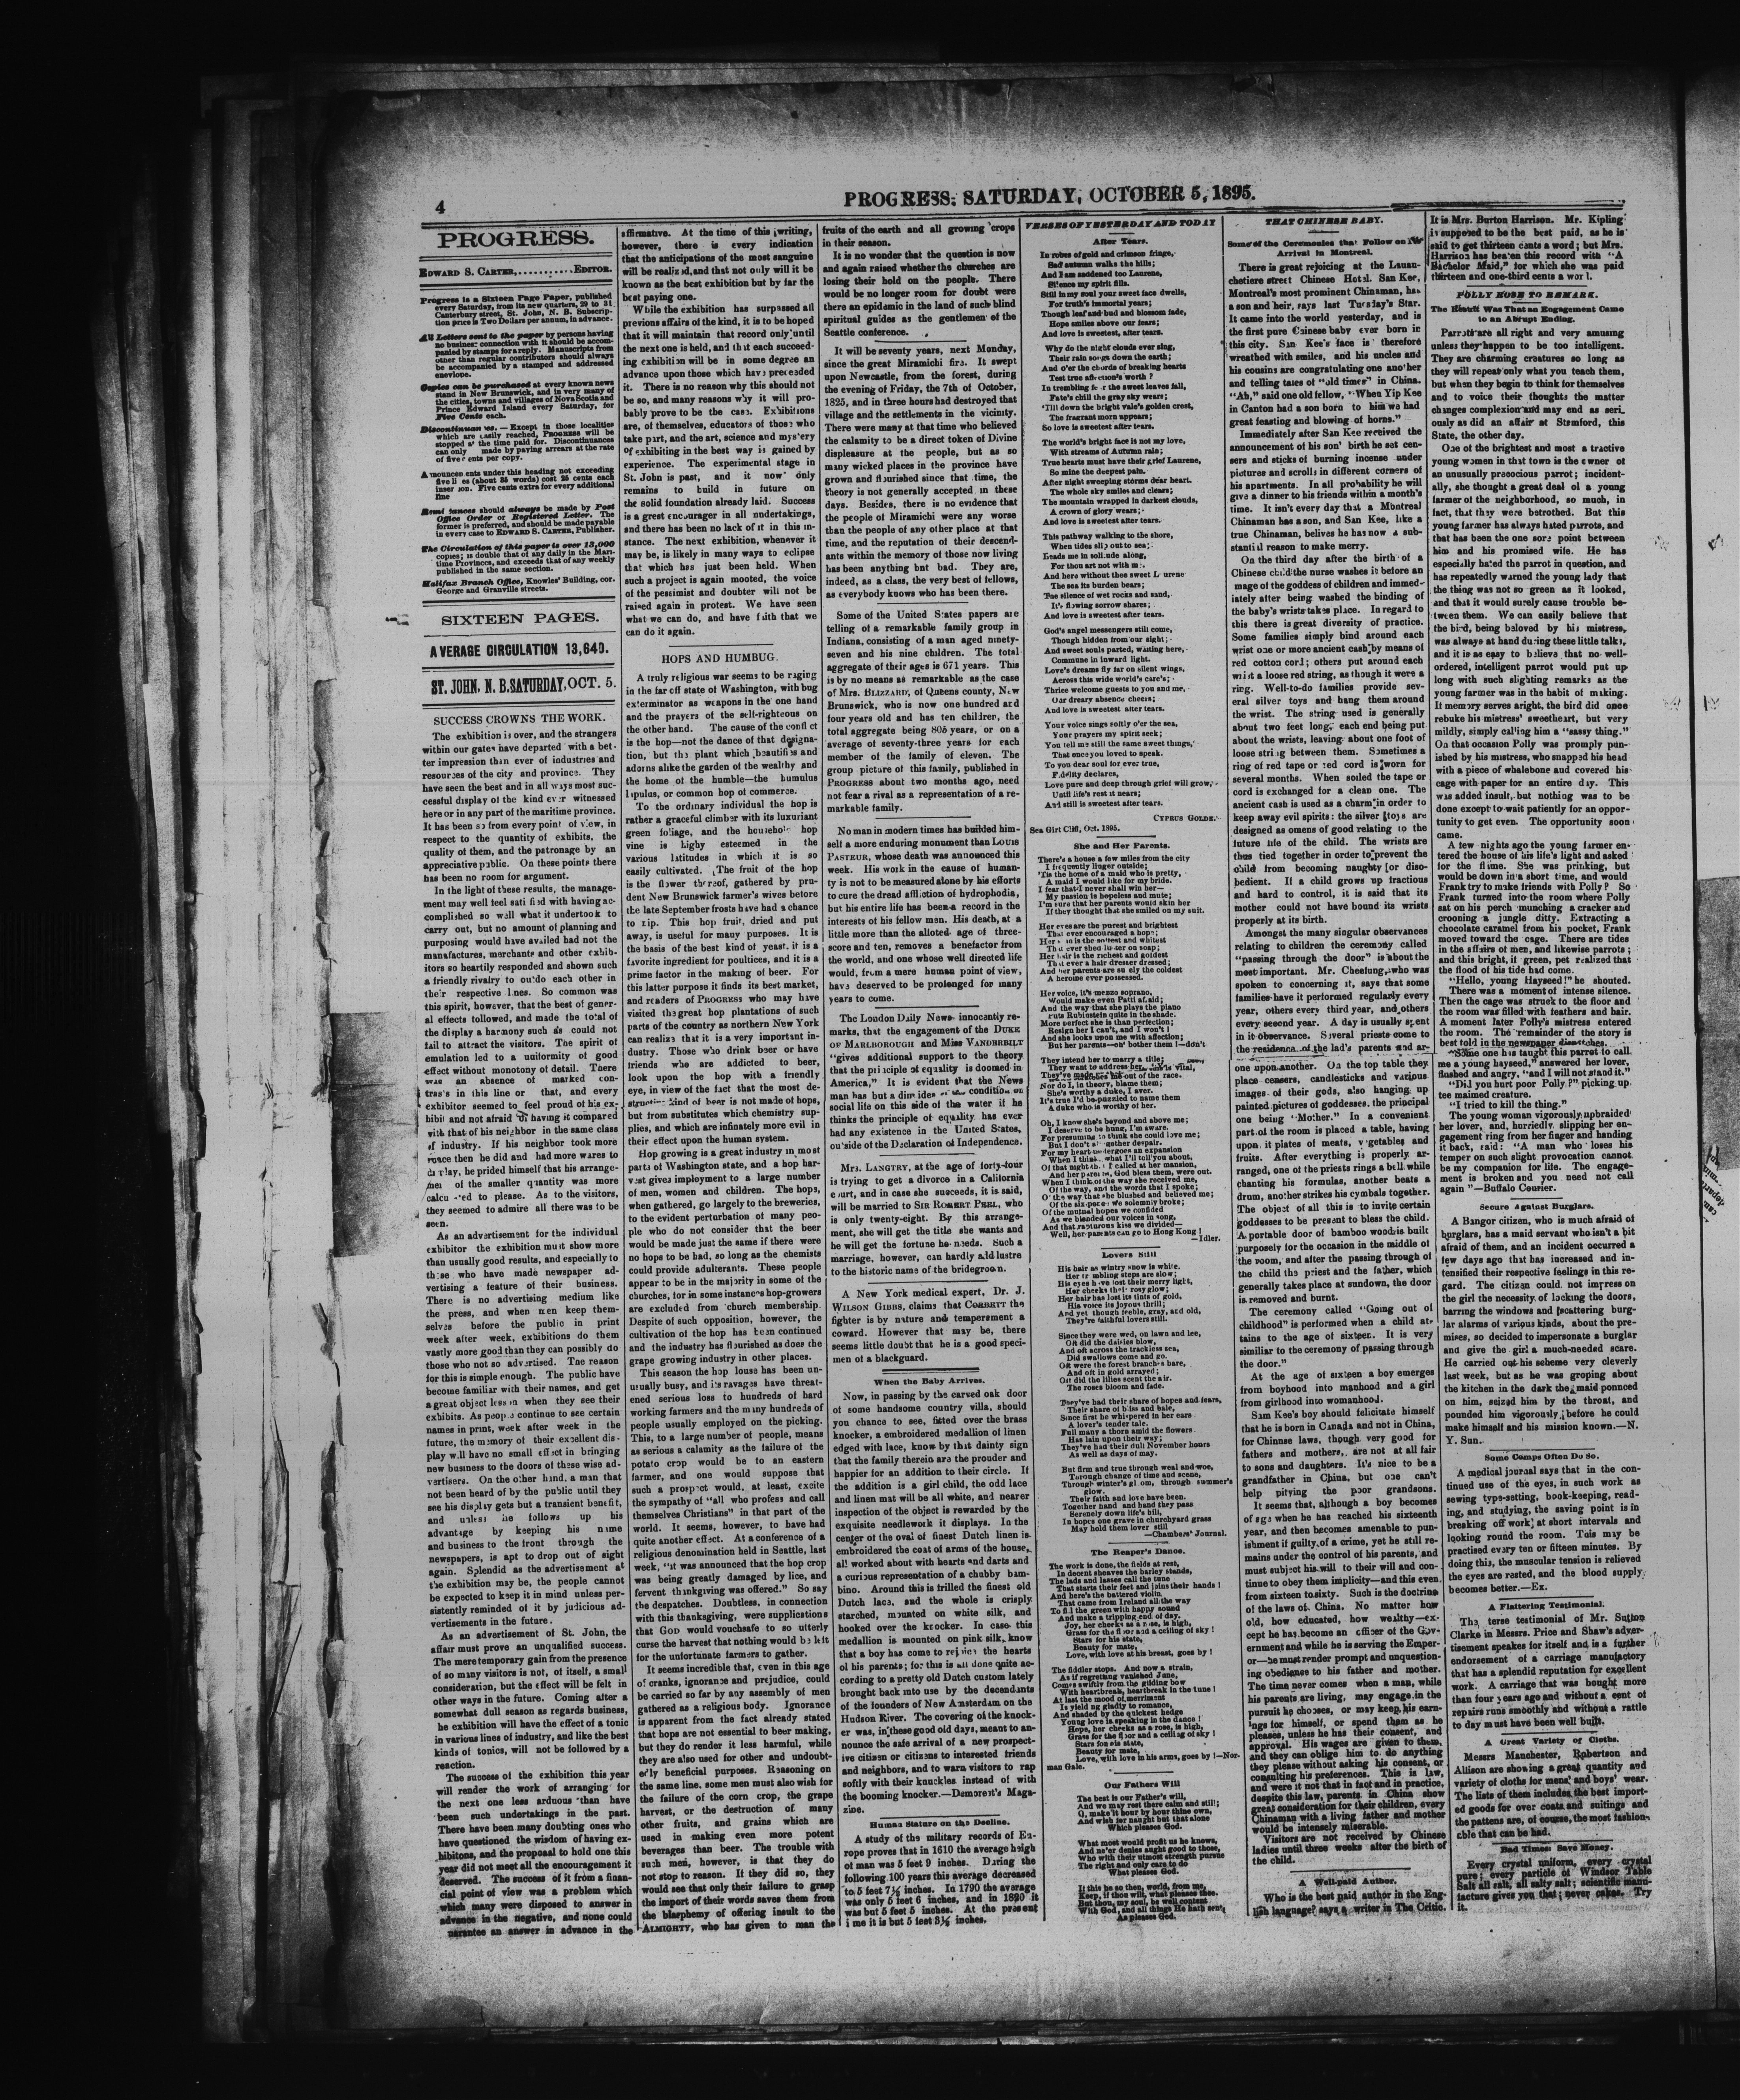 4
PROGRESS, SATURDAY, OCTOBER 5, 1895.
PROGRESS.
EDWARD S. CARTER,..........EDITOR.
Progress is a Sixteen Page Paper, published
every Saturday, from its new quarters, 29 to 31
Canterbury street, St. John, N. B. Subscrip-
tion price is Two Dollars per annum, in advance.
All Letters sent to the paper by persons having
no business connection with it should be accom-
panied by stamps for a reply. Manuscripts from
other than regular contributors should always
be accompanied by a stamped and addressed
envelope.
Copies can be purchased at every known news
stand in New Brunswick, and in very many of
the cities, towns and villages of Nova Scotia and
Prince Edward Island every Saturday, for
Five Cents each.
Except in those localities
which are easily reached, PROGRESS will be
stopped at the time paid for. Discontinuances
can only made by paying arrears at the rate
of five cents per copy.
under this heading not exceeding
five lines (about 35 words) cost 25 cents each
Five cents extra for every additional
line
should always be made by Post
Office Order or Registered Letter. The
former is preferred, and should be made payable
in every case to EDWARD S. CARTER, Publisher.
The Circulation of this paper is over 13,000
copies; is double that of any daily in the Mari-
time Provinces, and exceeds that of any weekly
published in the same section.
Halifax Branch Office, Knowles' Building, cor.
George and Granville streets.
SIXTEEN PAGES.
AVERAGE CIRCULATION 13,640.
ST. JOHN, N. B. SATURDAY, OCT. 5.
SUCCESS CROWNS THE WORK.
The exhibition is over, and the strangers
within our gates have departed with a bet-
ter impression than ever of industries and
resources of the city and province. They
have seen the best and in all ways most suc-
cessful display of the kind ever witnessed
here or in any part of the maritime province.
It has been so from every point of view, in
respect to the quantity of exhibits, the
quality of them, and the patronage by an
appreciative public. On these points there
has been no room for argument.
In the light of these results, the manage-
ment may well feel satisfied with having ac-
complished so well what it undertook to
carry out, but no amount of planning and
purposing would have availed had not the
manufactures, merchants and other exhib-
itors so heartily responded and shown such
a friendly rivalry to outdo each other in
their respective lines. So common was
this spirit, however, that the best of gener-
al effects followed, and made the total of
the display a harmony such as could not
fail to attract the visitors. The spirit of
emulation led to a uniformity of good
effect without monotony of detail. There
was an absence of marked con-
trasts in this line or that, and each
exhibitor seemed to feel proud of his ex-
hibit and not afraid of having it compared
with that of his neighbor in the same class
of industry. If his neighbor took more
space then he did and had more wares to
display, he prided himself that his arrange-
ment of the smaller quantity was more
calculated to please. As to the visitors,
they seemed to admire all there was to be
seen.
As an advertisement for the individual
exhibitor the exhibition must show more
than usually good results, and especially to
those who have made newspaper ad-
vertising a feature of their business.
There is no advertising medium like
the press, and when men keep them-
selves before the public in print
week after week, exhibitions do them
vastly more good than they can possibly do
those who not so advertised. The reason
for this is simple enough. The public have
become familiar with their names, and get
a great object lesson when they see their
exhibits. As people continue to see certain
names in print, week after week in the
future, the memory of their excellent dis-
play will have no small effect in bringing
new business to the doors of these wise ad-
vertisers. On the other hand, a man that
not been heard of by the public until they
see his display gets but a transient benefit,
and unless he follows up his
advantage by keeping his name
and business to the front through the
newspapers, is apt to drop out of sight
again. Splendid as the advertisement at
the exhibition may be, the people cannot
be expected to keep it in mind unless per-
sistently reminded of it by judicious ad-
vertisements in the future.
As an advertisement of St. John, the
affair must prove an unqualified success.
The mere temporary gain from the presence
of so many visitors is not, of itself, a small
consideration, but the effect will be felt in
other ways in the future. Coming after a
somewhat dull season as regards business,
he exhibition will have the effect of a tonic
in various lines of industry, and like the best
kinds of tonics, will not be followed by a
reaction.
The success of the exhibition this year
will render the work of arranging for
the next one less arduous than have
been such undertakings in the past.
There have been many doubting ones who
have questioned the wisdom of having ex-
hibitons, and the proposal to hold one this
year did not meet all the encouragement it
deserved. The success of it from a finan-
cial point of view was a problem which
which many were disposed to answer in
advance in the negative, and none could
guarantee an answer in advance in the
affirmative. At the time of this writing,
however, there is every indication
that the anticipations of the most sanguine
will be realized, and that not only will it be
known as the best exhibition but by far the
best paying one.
While the exhibition has surpassed all
previous affairs of the kind, it is to be hoped
that it will maintain that record only until
the next one is held, and that each succeed-
ing exhibition will be in some degree an
advance upon those which have preceeded
it. There is no reason why this should not
be so, and many reasons why it will pro-
bably prove to be the case. Exhibitions
are, of themselves, educators of those who
take part, and the art, science and mystery
of exhibiting in the best way is gained by
experience. The experimental stage in
St. John is past, and it now only
remains to build in future on
the solid foundation already laid. Success
is a great encourager in all undertakings,
and there has been no lack of it in this in-
stance. The next exhibition, whenever it
may be, is likely in many ways to eclipse
that which has just been held. When
such a project is again mooted, the voice
of the pessimist and doubter will not be
raised again in protest. We have seen
what we can do, and have faith that we
can do it again.
HOPS AND HUMBUG.
A truly religious war seems to be raging
in the far off state of Washington, with bug
exterminator as weapons in the one hand
and the prayers of the self-righteous on
the other hand. The cause of the conflict
is the hop—not the dance of that designa-
tion, but the plant which beautifies and
adorns alike the garden of the wealthy and
the home of the humble—the humulus
lupulus, or common hop of commerce.
To the ordinary individual the hop is
rather a graceful climber with its luxuriant
green foliage, and the household hop
vine is highy esteemed in the
various latitudes in which it is so
easily cultivated. The fruit of the hop
is the flower thereof, gathered by pru-
dent New Brunswick farmer's wives before
the late September frosts have had a chance
to rip. This hop fruit, dried and put
away, is useful for many purposes. It is
the basis of the best kind of yeast, it is a
favorite ingredient for poultices, and it is a
prime factor in the making of beer. For
this latter purpose it finds its best market,
and readers of PROGRESS who may have
visited the great hop plantations of such
parts of the country as northern New York
can realize that it is a very important in-
dustry. Those who drink beer or have
friends who are addicted to beer,
look upon the hop with a friendly
eye, in view of the fact that the most de-
structive kind of beer is not made of hops,
but from substances which chemistry sup-
plies, and which are infinately more evil in
their effect upon the human system.
Hop growing is a great industry in most
parts of Washington state, and a hop har-
vest gives imployment to a large number
of men, women and children. The hops,
when gathered, go largely to the breweries,
to the evident perturbation of many peo-
ple who do not consider that the beer
would be made just the same if there were
no hops to be had, so long as the chemists
could provide adulterants. These people
appear to be in the majority in some of the
churches, for in some instances hop-growers
are excluded from church membership.
Despite of such opposition, however, the
cultivation of the hop has been continued
and the industry has flourished as does the
grape growing industry in other places.
This season the hop louse has been un-
usually busy, and its ravages have threat-
ened serious loss to hundreds of hard
working farmers and the many hundreds of
people usually employed on the picking.
This, to a large number of people, means
as serious a calamity as the failure of the
potato crop would be to an eastern
farmer, and one would suppose that
such a prospect would, at least, excite
the sympathy of "all who profess and call
themselves Christians" in that part of the
world. It seems, however, to have had
quite another effect. At a conference of a
religious denomination held in Seattle, last
week, "it was announced that the hop crop
was being greatly damaged by lice, and
fervent thnkgiving was offered." So say
the despatches. Doubtless, in connection
with this thanksgiving, were supplications
that GOD would vouchsafe to so utterly
curse the harvest that nothing would be left
for the unfortunate farmers to gather.
It seems incredible that, even in this age
of cranks, ignorance and prejudice, could
be carried so far by any assembly of men
gathered as a religious body. Ignorance
is apparent from the fact already stated
that hops are not essential to beer making,
but they do render it less harmful, while
they are also used for other and undoubt-
edly beneficial purposes. Reasoning on
the same line, some men must also wish for
the failure of the corn crop, the grape
harvest, or the destruction of many
other fruits, and grains which are
used in making even more potent
beverages than beer. The trouble with
such men, however, is that they do
not stop to reason. If they did so, they
would see that only their failure to grasp
the import of their words saves them from
the blasphemy of offering insult to the
ALMIGHTY, who has given to man the
fruits of the earth and all growing crops
in their season.
It is no wonder that the question is now
and again raised whether the churches are
losing their hold on the people. There
would be no longer room for doubt were
there an epidemic in the land of such blind
spiritual guides as the gentlemen of the
Seattle conference.
It will be seventy years, next Monday,
since the great Miramichi fire. It swept
upon Newcastle, from the forest, during
the evening of Friday, the 7th of October,
1825, and in three hours had destroyed that
village and the settlements in the vicinity.
There were many at that time who believed
the calamity to be a direct token of Divine
displeasure at the people, but as so
many wicked places in the province have
grown and flourished since that time, the
theory is not generally accepted in these
days. Besides, there is no evidence that
the people of Miramichi were any worse
than the people of any other place at that
time, and the reputation of their descend-
ants within the memory of those now living
has been anything but bad. They are,
indeed, as a class, the very best of fellows,
as everybody knows who has been there.
Some of the United States papers are
telling of a remarkable family group in
Indiana, consisting of a man aged ninety-
seven and his nine children. The total
aggregate of their ages is 671 years. This
is by no means as remarkable as the case
of Mrs. BLIZZARD, of Queens county, New
Brunswick, who is now one hundred and
four years old and has ten children, the
total aggregate being 805 years, or on a
average of seventy-three years for each
member of the family of eleven. The
group picture of this family, published in
PROGRESS about two months ago, need
not fear a rival as a representation of a re-
markable family.
No man in modern times has builded him-
self a more enduring monument than LOUIS
PASTEUR, whose death was announced this
week. His work in the cause of human-
ty is not to be measured alone by his efforts
to cure the dread affliction of hydrophobia,
but his entire life has been a record in the
interests of his fellow men. His death, at a
little more than the alloted age of three-
score and ten, removes a benefactor from
the world, and one whose well directed life
would, from a mere human point of view,
have deserved to be prolonged for many
years to come.
The London Daily News innocently re-
marks, that the engagement of the DUKE
OF MARLBOROUGH and Miss VANDERBILT
"gives additional support to the theory
that the principle of equality is doomed in
America," It is evident that the News
man has but a dim idea of the condition of
social life on this side of the water if he
thinks the principle of equality has ever
had any existence in the United States,
outside of the Declaration of Independence.
Mrs. LANGTRY, at the age of forty-four
is trying to get a divorce in a California
court, and in case she succeeds, it is said,
will be married to SIR ROBERT PEEL, who
is only twenty-eight. By this arrange-
ment, she will get the title she wants and
he will get the fortune he needs. Such a
marriage, however, can hardly add lustre
to the historic name of the bridegroom.
A New York medical expert, Dr. J.
WILSON GIBBS, claims that CORBETT the
fighter is by nature and temperament a
coward. However that may be, there
seems little doubt that he is a good speci-
men of a blackguard.
When the Baby Arrives.
Now, in passing by the carved oak door
of some handsome country villa, should
you chance to see, fitted over the brass
knocker, a embroidered medallion of linen
edged with lace, know by that dainty sign
that the family therein are the prouder and
happier for an addition to their circle. If
the addition is a girl child, the odd lace
and linen mat will be all white, and nearer
inspection of the object is rewarded by the
exquisite needlework it displays. In the
center of the oval of finest Dutch linen is
embroidered the coat of arms of the house,
all worked about with hearts and darts and
a curious representation of a chubby bam-
bino. Around this is frilled the finest old
Dutch lace, and the whole is crisply
starched, mounted on white silk, and
hooked over the knocker. In case this
medallion is mounted on pink silk, know
that a boy has come to rejoice the hearts
of his parents; for this is all done quite ac-
cording to a pretty old Dutch custom lately
brought back into use by the decendants
of the founders of New Amsterdam on the
Hudson River. The covering of the knock-
er was, in these good old days, meant to an-
nounce the safe arrival of a new prospect-
ive citizen or citizens to interested friends
and neighbors, and to warn visitors to rap
softly with their knuckles instead of with
the booming knocker.—Demorest's Maga-
zine.
Human Stature on the Decline.
A study of the military records of Eu-
rope proves that in 1610 the average heigh
of man was 5 feet 9 inches. During the
following 100 years this average decreased
to 5 feet 7½ inches. In 1790 the average
was only 5 feet 6 inches, and in 1820 it
was but 5 feet 5 inches. At the present
ime it is but 5 feet 3½ inches.
VERSES OF YESTERDAY AND TODAY
After Tears.
In robes of gold and crimson fringe,
Sad autumn walks the hills;
And I am saddened too Laurene,
Silence my spirit fills.
Still in my soul your sweet face dwells,
For truth's immortal years;
Though leaf and bud and blossom fade,
Hope smiles above our tears;
And love is sweetest, after tears.
Why do the night clouds ever sing,
Their rain songs down the earth;
And o'er the chords of breaking hearts
Test true affection's worth?
In trembling fear the sweet leaves fall,
Fate's chill the gray sky wears;
'Till down the bright vale's golden crest,
The fragrant morn appears;
So love is sweetest after tears.
The world's bright face is not my love,
With streams of Autumn rain;
True hearts must have their grief Laurene,
So mine the deepest pain.
After night sweeping storms dear heart.
The whole sky smiles and clears;
The mountain wrapped in darkest clouds,
A crown of glory wears;
And love is sweetest after tears.
This pathway walking to the shore,
When tides slip out to sea;
Leads me in solitude along,
For thou art not with me.
And here without thee sweet Laurene
The sea its burden bears;
The silence of wet rocks and sand,
It's flowing sorrow shares;
And love is sweetest after tears.
God's angel messengers still come,
Though hidden from our sight;
And sweet souls parted, waiting here,
Commune in inward light.
Love's dreams fly far on silent wings,
Across this wide world's care's;
Thrice welcome guests to you and me,
Our dreary absence cheers;
And love is sweetest after tears.
Your voice sings softly o'er the sea,
Your prayers my spirit seek;
You tell me still the same sweet things,
That once you loved to speak.
To you dear soul for ever true,
Fidelity declares,
Love pure and deep through grief will grow,
Until life's rest it nears;
And still is sweetest after tears.
CYPRUS GOLDE.
Sea Girt Cliff, Oct. 1895.
She and Her Parents.
There's a house a few miles from the city
I frequently linger outside;
'Tis the home of a maid who is pretty,
A maid I would like for my bride.
I fear that I never shall win her—
My passion is hopeless and mute;
I'm sure that her parents would skin her
If they thought that she smiled on my suit.
Her eyes are the purest and brightest
That ever encouraged a hope;
Her skin is the softest and whitest
That ever shed luster on soap;
Her hair is the richest and goldest
That ever a hair dresser dressed;
And her parents are surely the coldest
A heroine ever possessed.
Her voice, it's mezzo soprano,
Would make even Patti afraid;
And the way that she plays the piano
Puts Rubinstein quite in the shade.
More perfect she is than perfection;
Resign her I can't, and I won't!
And she looks upon me with affection;
But her parents—oh' bother them!—don't
They intend her to marry a title;
They want to address her
out of the race.
Nor do I, in theory, blame them;
She's worthy a duke, I aver.
It's true I'd be puzzled to name them
A duke who is worthy of her.
Oh, I know she's beyond and above me;
I deserve to be hung, I'm aware.
For presuming to think she could love me;
But I don't altogether despair.
For my heart undergoes an expansion
When I think what I'll tell you about.
Of that night that I called at her mansion,
And her parents, God bless them, were out.
When I think of the way she received me,
Of the way, and the words that I spoke;
O' the way that she blushed and believed me;
Of the six-pence we solemnly broke;
Of the mutual hopes we confided
As we blended our voices in song,
And that rapturous kiss we divided—
Well, her parents can go to Hong Kong!
—Idler.
Lovers Still
His hair as wintry snow is white.
Her trembling steps are slow;
His eyes have lost their merry light,
Her cheeks their rosy glow;
Her hair has lost its tints of gold,
His voice its joyous thrill;
And yet though feeble, gray, and old,
They're faithful lovers still.
Since they were wed, on lawn and lee,
Oft did the daisies blow,
And oft across the trackless sea,
Did swallows come and go.
Oft were the forest branches bare,
And oft in gold arrayed;
Oft did the lilies scent the air.
The roses bloom and fade.
They've had their share of hopes and fears,
Their share of bliss and bale,
Since first he whispered in her ears
A lover's tender tale.
Full many a thorn amid the flowers
Has lain upon their way;
They've had their dull November hours
As well as days of may.
But firm and true through weal and woe,
Through change of time and scene,
Through winter's gloom, through summer's
glow,
Their faith and love have been.
Together hand and hand they pass
Serenely down life's hill,
In hopes one grave in churchyard grass
May hold them lover still
—Chambers' Journal.
The Reaper's Dance.
The work is done, the fields at rest,
In decent sheaves the barley stands,
The lads and lasses call the tune
That starts their feet and joins their hands!
And here's the battered violin
That came from Ireland all the way
To fill the green with happy sound
And make a tripping end of day.
Joy, her cheeks as a rose, is high,
Grass for the floor and a ceiling of sky!
Stars for his state,
Beauty for mate,
Love, with love at his breast, goes by!
The fiddler stops. And now a strain,
As if regretting vanished June,
Comes swiftly from the gilding bow
With heartbreak, heartbreak in the tune!
At last the mood of merriment
Is yielding gladly to romance,
And shaded by the quickest hedge
Young love is speaking in the dance!
Hope, her cheeks as a rose, is high,
Grass for the floor and a ceiling of sky!
Stars for his state,
Beauty for mate,
Love, with love in his arms, goes by!—Nor-
man Gale.
Our Fathers Will
The best is our Father's will,
And we may rest there calm and still;
O, make it hour by hour thine own,
And wish for naught but that alone
Which pleases God.
What most would profit us he knows,
And ne'er denies aught good to those,
Who with their utmost strength pursue
The right and only care to do
What pleases God.
If this be so then, world, from me,
Keep, if thou will, what pleases thee.
But thou, my soul, be well content
With God, and all things He hath sent,
As pleases God.
THAT CHINESE BABY.
Some of the Ceremonies that Follow on its
Arrival in Montreal.
There is great rejoicing at the Lauan-
chetiere street Chinese Hotel. San Kee,
Montreal's most prominent Chinaman, has
a son and heir, says last Tuesday's Star.
It came into the world yesterday, and is
the first pure Chinese baby ever born in
this city. San Kee's face is therefore
wreathed with smiles, and his uncles and
his cousins are congratulating one another
and telling tales of "old times" in China.
"Ah," said one old fellow, "When Yip Kee
in Canton had a son born to him we had
great feasting and blowing of horns."
Immediately after San Kee received the
announcement of his son' birth he set cen-
sers and sticks of burning incense under
pictures and scrolls in different corners of
his apartments. In all probability he will
give a dinner to his friends within a month's
time. It isn't every day that a Montreal
Chinaman has a son, and San Kee, like a
true Chinaman, belives he has now a sub-
stantial reason to make merry.
On the third day after the birth of a
Chinese child the nurse washes it before an
mage of the goddess of children and immed-
iately after being washed the binding of
the baby's wrists takes place. In regard to
this there is great diversity of practice.
Some families simply bind around each
wrist one or more ancient cash by means of
red cotton cord; others put around each
wrist a loose red string, as though it were a
ring. Well-to-do families provide sev-
eral silver toys and hang them around
the wrist. The string used is generally
about two feet long, each end being put
about the wrists, leaving about one foot of
loose string between them. Sometimes a
ring of red tape or red cord is worn for
several months. When soiled the tape or
cord is exchanged for a clean one. The
ancient cash is used as a charm in order to
keep away evil spirits: the silver toys are
designed as omens of good relating to the
future life of the child. The wrists are
thus tied together in order to prevent the
child from becoming naughty or diso-
bedient. If a child grows up fractious
and hard to control, it is said that its
mother could not have bound its wrists
properly at its birth.
Amongst the many singular observances
relating to children the ceremony called
"passing through the door" is about the
most important. Mr. Cheefung, who was
spoken to concerning it, says that some
families have it performed regularly every
year, others every third year, and others
every second year. A day is usually spent
in it observance. Several priests come to
the residence of the lad's parents and ar-
one upon another. On the top table they
place censers, candlesticks and various
images of their gods, also hanging up
painted pictures of goddesses, the principal
one being "Mother." In a convenient
part of the room is placed a table, having
upon it plates of meats, vegetables and
fruits. After everything is properly ar-
ranged, one of the priests rings a bell while
chanting his formulas, another beats a
drum, another strikes his cymbals together.
The object of all this is to invite certain
goddesses to be present to bless the child.
A portable door of bamboo wood is built
purposely for the occasion in the middle of
the room, and after the passing through of
the child the priest and the father, which
generally takes place at sundown, the door
is removed and burnt.
The ceremony called "Going out of
childhood" is performed when a child at-
tains to the age of sixteen. It is very
similiar to the ceremony of passing through
the door."
At the age of sixteen a boy emerges
from boyhood into manhood and a girl
from girlhood into womanhood.
Sam Kee's boy should felicitate himself
that he is born in Canada and not in China,
for Chinese laws, though very good for
fathers and mothers, are not at all fair
to sons and daughters. It's nice to be a
grandfather in China, but one can't
help pitying the poor grandsons.
It seems that, although a boy becomes
of age when he has reached his sixteenth
year, and then becomes amenable to pun-
ishment if guilty of a crime, yet he still re-
mains under the control of his parents, and
must subject his will to their will and con-
tinue to obey them implicity—and this even
from sixteen to sixty. Such is the doctrine
of the laws of China. No matter how
old, how educated, how wealthy—ex-
cept he has become an officer of the Gov-
ernment and while he is serving the Emper-
or—he must render prompt and unquestion-
ing obedience to his father and mother.
The time never comes when a man, while
his parents are living, may engage in the
pursuit he chooses, or may keep his earn-
ings for himself, or spend them as he
pleases, unless he has their consent, and
approval. His wages are given to them,
and they can oblige him to do anything
they please without asking his consent, or
consulting his preferences. This is law,
and were it not that in fact and in practice,
despite this law, parents in China show
great consideration for their children, every
Chinaman with a living father and mother
would be intensely miserable.
Visitors are not received by Chinese
ladies until three weeks after the birth of
the child.
A Well-paid Author.
Who is the best paid author in the Eng-
lish language? says a writer in The Critic.
It is Mrs. Burton Harrison. Mr. Kipling
is supposed to be the best paid, as he is
said to get thirteen cents a word; but Mrs.
Harrison has beaten this record with "A
Bachelor Maid," for which she was paid
thirteen and one-third cents a word.
POLLY ROSE TO REMARK.
The Result Was That an Engagement Came
to an Abrupt Ending.
Parrots are all right and very amusing
unless they happen to be too intelligent.
They are charming creatures so long as
they will repeat only what you teach them,
but when they begin to think for themselves
and to voice their thoughts the matter
changes complexion and may end as seri-
ously as did an affair at Stamford, this
State, the other day.
One of the brightest and most a tractive
young women in that town is the owner of
an unusually precocious parrot; incident-
ally, she thought a great deal of a young
farmer of the neighborhood, so much, in
fact, that they were betrothed. But this
young farmer has always hated parrots, and
that has been the one sore point between
him and his promised wife. He has
especially hated the parrot in question, and
has repeatedly warned the young lady that
the thing was not so green as it looked,
and that it would surely cause trouble be-
tween them. We can easily believe that
the bird, being beloved by his mistress,
was always at hand during these little talks,
and it is as easy to believe that no well-
ordered, intelligent parrot would put up
long with such slighting remarks as the
young farmer was in the habit of making.
It memory serves aright, the bird did once
rebuke his mistress' sweetheart, but very
mildly, simply calling him a "sassy thing."
On that occasion Polly was promply pun-
ished by his mistress, who snapped his head
with a piece of whalebone and covered his
cage with paper for an entire day. This
was added insult, but nothing was to be
done except to wait patiently for an oppor-
tunity to get even. The opportunity soon
came.
A few nights ago the young farmer en-
tered the house of his life's light and asked
for the flame. She was prinking, but
would be down in a short time, and would
Frank try to make friends with Polly? So
Frank turned into the room where Polly
sat on his perch munching a cracker and
crooning a jungle ditty. Extracting a
chocolate caramel from his pocket, Frank
moved toward the cage. There are tides
in the affairs of men, and likewise parrots;
and this bright, if green, pet realized that
the flood of his tide had come.
"Hello, young Hayseed!" he shouted.
There was a moment of intense silence.
Then the cage was struck to the floor and
the room was filled with feathers and hair.
A moment later Polly's mistress entered
the room. The remainder of the story is
best told in the newspaper dispatches.
"Some one his taught this parrot to call
me a young hayseed," answered her lover,
flushed and angry, "and I will not stand it."
"Did you hurt poor Polly?" picking up
tee maimed creature.
"I tried to kill the thing."
The young woman vigorously upbraided
her lover, and, hurriedly slipping her en-
gagement ring from her finger and handing
it back, said: "A man who loses his
temper on such slight provocation cannot
be my companion for life. The engage-
ment is broken and you need not call
again"—Buffalo Courier.
Secure Against Burglars.
A Bangor citizen, who is much afraid of
burglars, has a maid servant who isn't a bit
afraid of them, and an incident occurred a
few days ago that has increased and in-
tensified their respective feelings in this re-
gard. The citizen could not impress on
the girl the necessity of locking the doors,
barring the windows and scattering burg-
lar alarms of various kinds, about the pre-
mises, so decided to impersonate a burglar
and give the girl a much-needed scare.
He carried out his scheme very cleverly
last week, but as he was groping about
the kitchen in the dark the maid ponnced
on him, seized him by the throat, and
pounded him vigorously, before he could
make himself and his mission known.—N.
Y. Sun.
Some Comps Often Do So.
A medical journal says that in the con-
tinued use of the eyes, in such work as
sewing type-setting, book-keeping, read-
ing, and studying, the saving point is in
breaking off work at short intervals and
looking round the room. This may be
practised every ten or fifteen minutes. By
doing this, the muscular tension is relieved
the eyes are rested, and the blood supply
becomes better.—Ex.
A Flattering Testimonial.
The terse testimonial of Mr. Sutton
Clarke in Messrs. Price and Shaw's adver-
tisement speaks for itself and is a further
endorsement of a carriage manufactory
that has a splendid reputation for excellent
work. A carriage that was bought more
than four years ago and without a cent of
repairs runs smoothly and without a rattle
to day must have been well built.
A Great Variety of Cloths.
Messrs Manchester, Robertson and
Allison are showing a great quantity and
variety of cloths for mens' and boys' wear.
The lists of them includes the best import-
ed goods for over coats and suitings and
the pattens are, of course, the most fashion-
able that can be had.
Bad Times: Save Money.
Every crystal uniform, every crystal
pure; every particle of Windsor Table
Salt all salt, all salty salt; scientific manu-
facture gives you that; never cakes. Try
it.